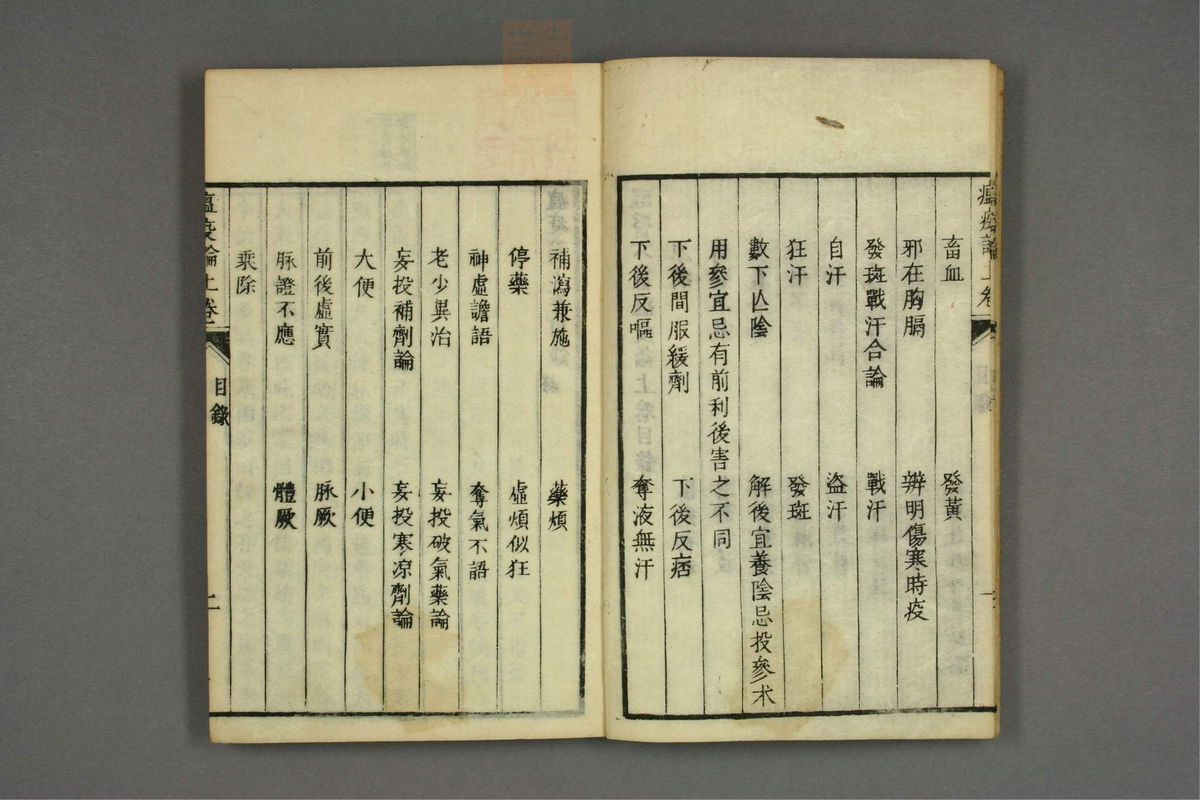 瘟疫論上卷
畜血　發黃
邪在胸膈　辨明傷寒時疫
發斑戰汗合論　戰汗
自汗　盜汗
狂汗　發斑
數下亾陰　解後宜養陰忌投參朮
用參宜忌有前利後害之不同
下後間服緩劑　下後反痞
下後反嘔　奪液無汗
補瀉兼施　藥煩
停藥　虛煩似狂
神虛譫語　奪氣不語
老少異治　妄投破氣藥論
妄投補劑論　妄投寒凉劑論
大便　小便
前後虛實　脈厥
脈證不應　體厥
乘除
瘟疫論上卷　目錄　二